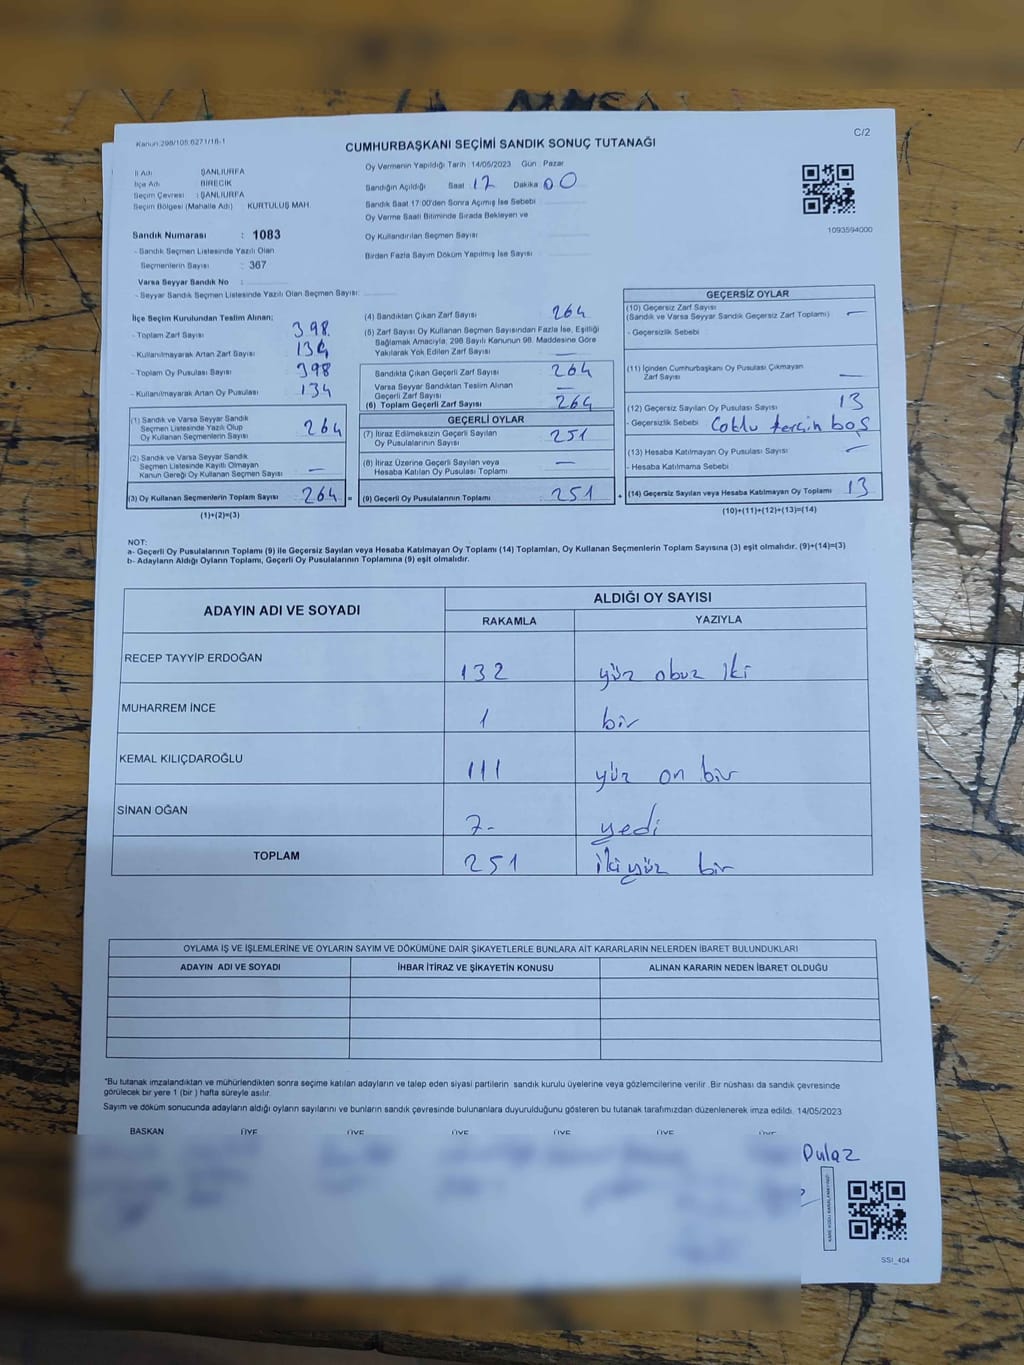 Kanun:298/105;6271/18-1
C/2
CUMHURBAŞKANI SEÇİMİ SANDIK SONUÇ TUTANAĞI
İl Adı : ŞANLIURFA
İlçe Adı : BİRECİK
Seçim Çevresi : ŞANLIURFA
Seçim Bölgesi (Mahalle Adı) : KURTULUŞ MAH.
Sandık Numarası : 1083
- Sandık Seçmen Listesinde Yazılı Olan
Seçmenlerin Sayısı : 367
Varsa Seyyar Sandık No :
- Seyyar Sandık Seçmen Listesinde Yazılı Olan Seçmen Sayısı:
Oy Vermenin Yapıldığı Tarih : 14/05/2023 Gün : Pazar
Sandığın Açıldığı Saat 17 Dakika 00
Sandık Saat 17:00'den Sonra Açımış İse Sebebi
Oy Verme Saati Bitiminde Sırada Bekleyen ve
Oy Kullandırılan Seçmen Sayısı
Birden Fazla Sayım Döküm Yapılmış İse Sayısı
1093594000
İlçe Seçim Kurulundan Teslim Alınan:
- Toplam Zarf Sayısı 398
- Kullanılmayarak Artan Zarf Sayısı 134
- Toplam Oy Pusulası Sayısı 398
- Kullanılmayarak Artan Oy Pusulası 134
(1) Sandık ve Varsa Seyyar Sandık
Seçmen Listesinde Yazılı Olup
Oy Kullanan Seçmenlerin Sayısı 264
(2) Sandık ve Varsa Seyyar Sandık
Seçmen Listesinde Kayıtlı Olmayan
Kanun Gereği Oy Kullanan Seçmen Sayısı —
(3) Oy Kullanan Seçmenlerin Toplam Sayısı 264 =
(1)+(2)=(3)
(4) Sandıktan Çıkan Zarf Sayısı 264
(5) Zarf Sayısı Oy Kullanan Seçmen Sayısından Fazla İse, Eşitliği
Sağlamak Amacıyla, 298 Sayılı Kanunun 98. Maddesine Göre
Yakılarak Yok Edilen Zarf Sayısı —
Sandıkta Çıkan Geçerli Zarf Sayısı 264
Varsa Seyyar Sandıktan Teslim Alınan
Geçerli Zarf Sayısı —
(6) Toplam Geçerli Zarf Sayısı 264
GEÇERLİ OYLAR
(7) İtiraz Edilmeksizin Geçerli Sayılan
Oy Pusulalarının Sayısı 251
(8) İtiraz Üzerine Geçerli Sayılan veya
Hesaba Katılan Oy Pusulası Toplamı —
(9) Geçerli Oy Pusulalarının Toplamı 251 +
GEÇERSİZ OYLAR
(10) Geçersiz Zarf Sayısı
(Sandık ve Varsa Seyyar Sandık Geçersiz Zarf Toplamı) —
- Geçersizlik Sebebi
(11) İçinden Cumhurbaşkanı Oy Pusulası Çıkmayan
Zarf Sayısı —
(12) Geçersiz Sayılan Oy Pusulası Sayısı 13
- Geçersizlik Sebebi Çoklu tercin boş
(13) Hesaba Katılmayan Oy Pusulası Sayısı —
- Hesaba Katılmama Sebebi
(14) Geçersiz Sayılan veya Hesaba Katılmayan Oy Toplamı 13
(10)+(11)+(12)+(13)=(14)
NOT:
a- Geçerli Oy Pusulalarının Toplamı (9) ile Geçersiz Sayılan veya Hesaba Katılmayan Oy Toplamı (14) Toplamları, Oy Kullanan Seçmenlerin Toplam Sayısına (3) eşit olmalıdır. (9)+(14)=(3)
b- Adayların Aldığı Oyların Toplamı, Geçerli Oy Pusulalarının Toplamına (9) eşit olmalıdır.
ADAYIN ADI VE SOYADI
ALDIĞI OY SAYISI
RAKAMLA YAZIYLA
RECEP TAYYİP ERDOĞAN 132 yüz obuz iki
MUHARREM İNCE 1 bir
KEMAL KILIÇDAROĞLU 111 yüz on bir
SİNAN OĞAN 7- yedi
TOPLAM 251 iki yüz bir
OYLAMA İŞ VE İŞLEMLERİNE VE OYLARIN SAYIM VE DÖKÜMÜNE DAİR ŞİKAYETLERLE BUNLARA AİT KARARLARIN NELERDEN İBARET BULUNDUKLARI
ADAYIN ADI VE SOYADI İHBAR İTİRAZ VE ŞİKAYETİN KONUSU ALINAN KARARIN NEDEN İBARET OLDUĞU
*Bu tutanak imzalandıktan ve mühürlendikten sonra seçime katılan adayların ve talep eden siyasi partilerin sandık kurulu üyelerine veya gözlemcilerine verilir .Bir nüshası da sandık çevresinde
görülecek bir yere 1 (bir ) hafta süreyle asılır.
Sayım ve döküm sonucunda adayların aldığı oyların sayılarını ve bunların sandık çevresinde bulunanlara duyurulduğunu gösteren bu tutanak tarafımızdan düzenlenerek imza edildi. 14/05/2023
BAŞKAN ÜYE ÜYE ÜYE ÜYE ÜYE ÜYE
Dulaz
SSI_404